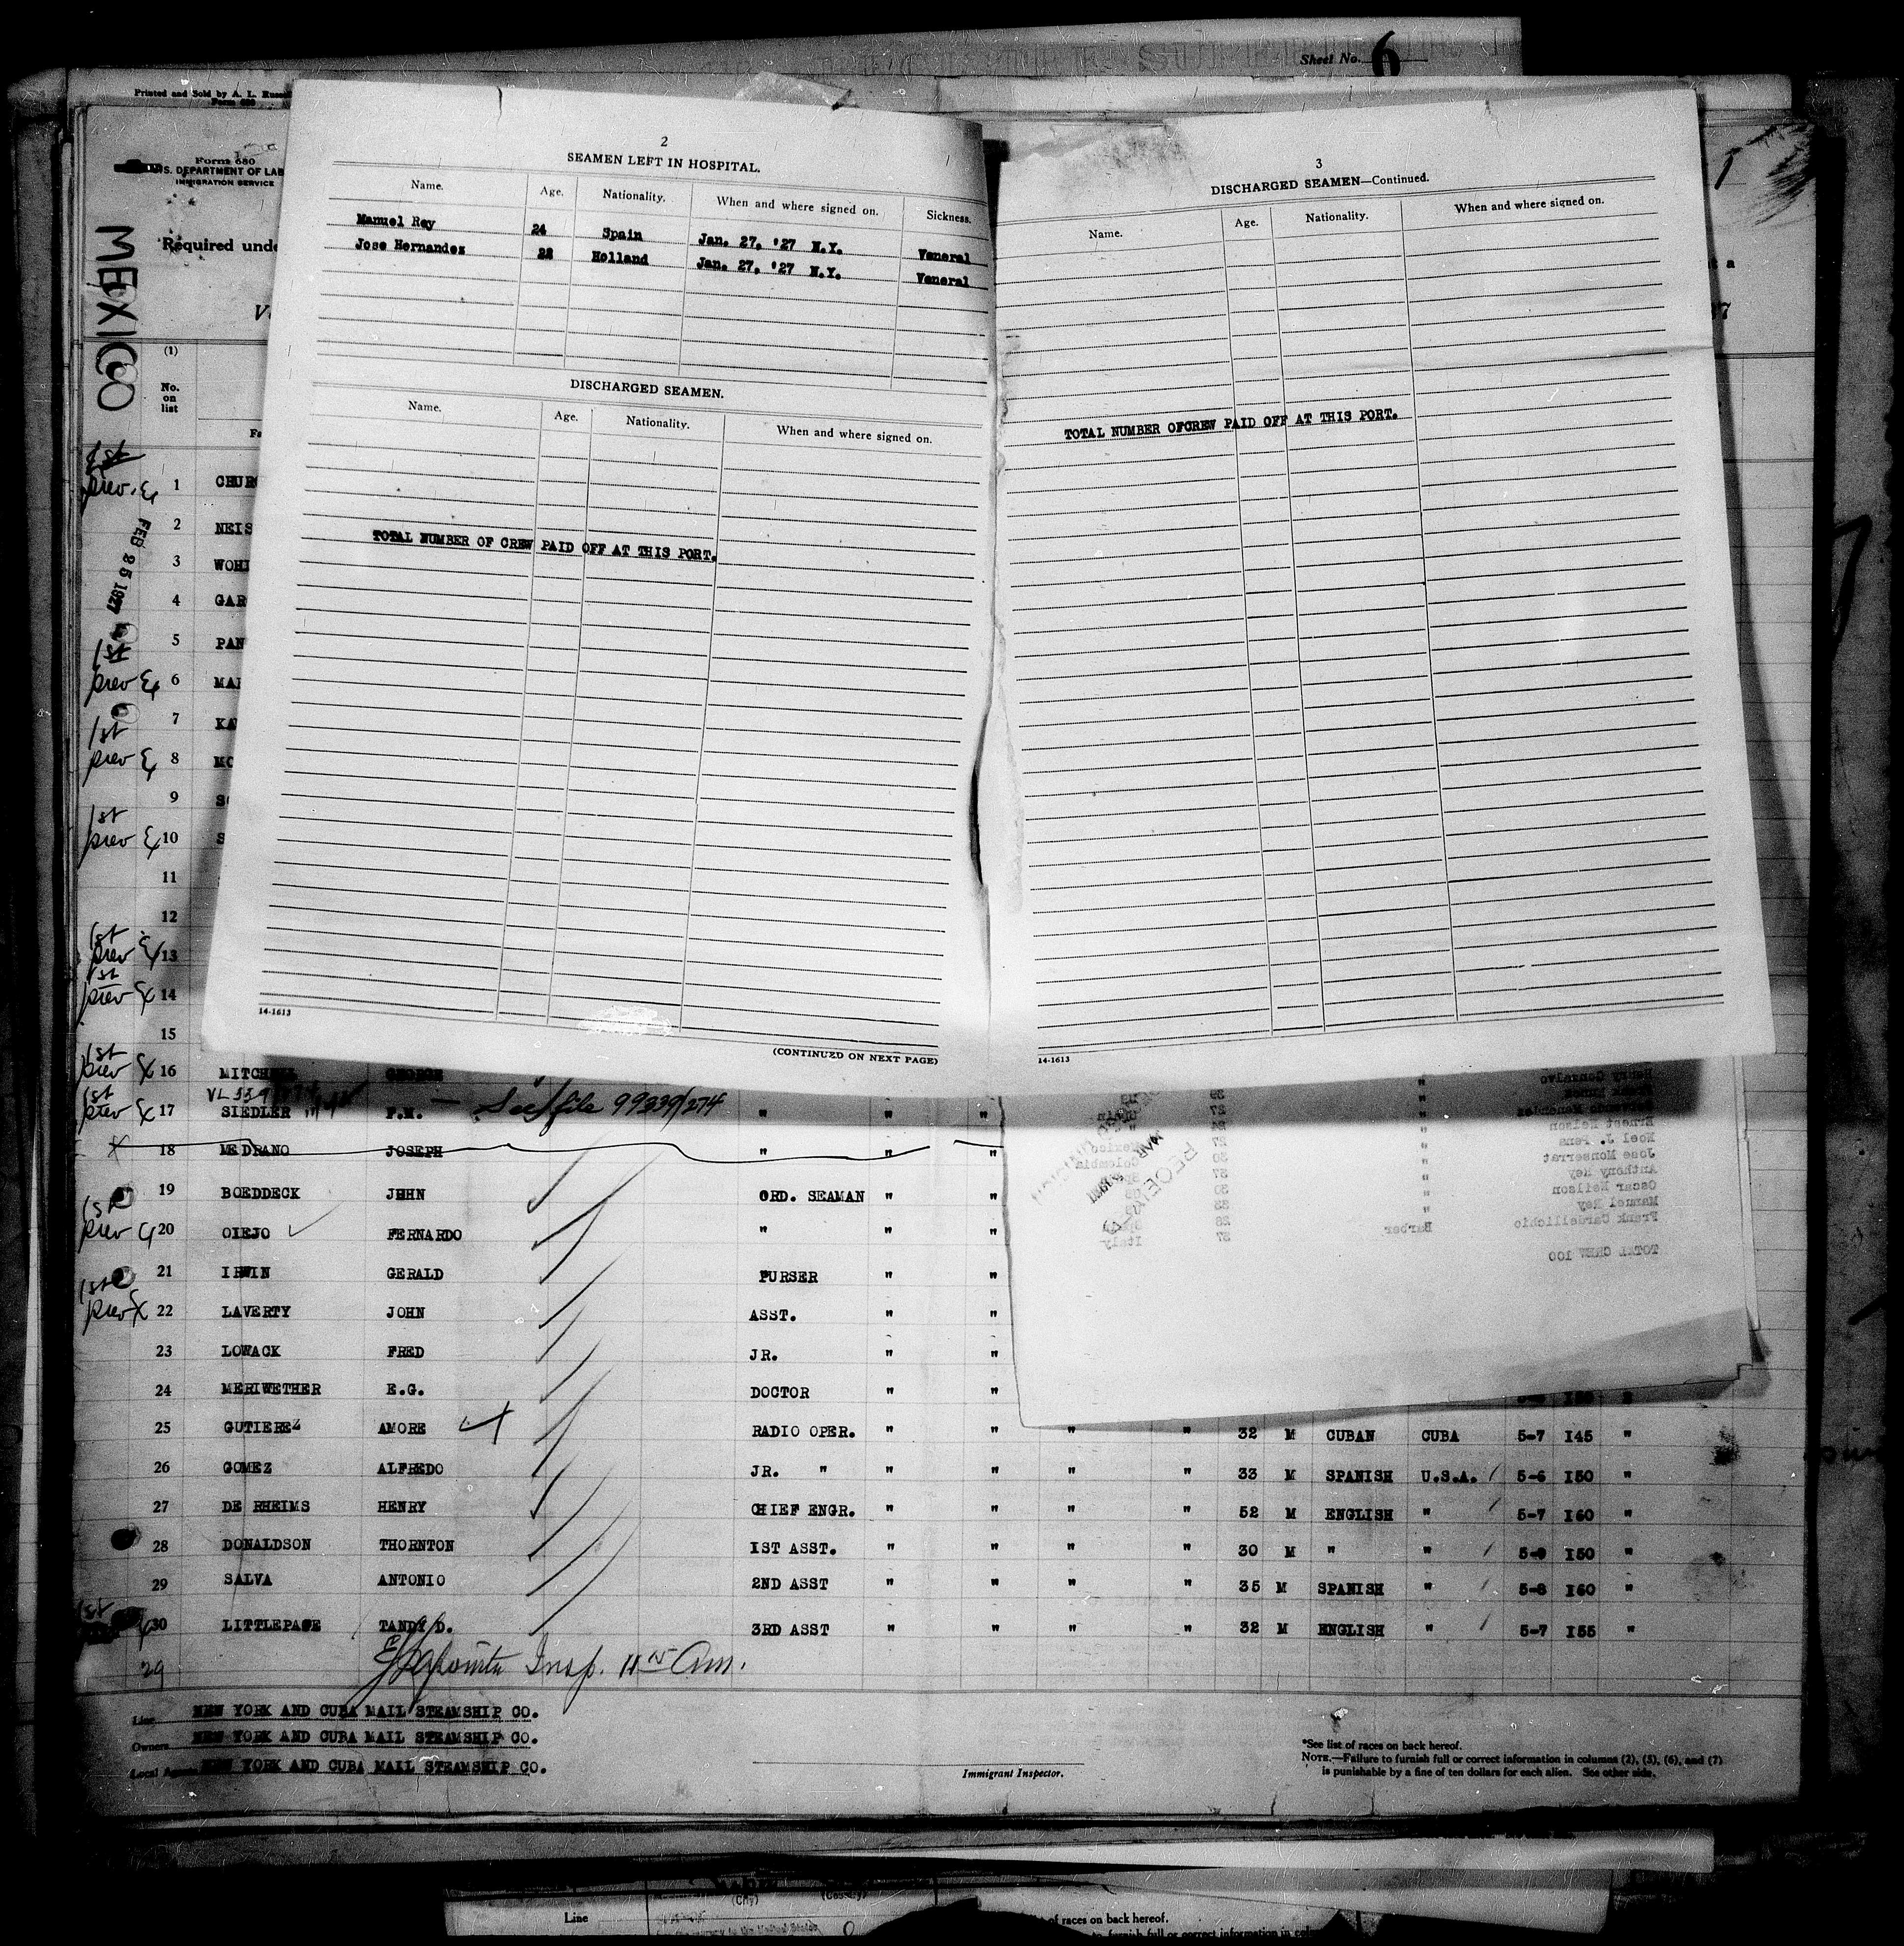 Sheet No. 6
Printed and Sold by A. L.
Form 680
Form 680
U.S. DEPARTMENT OF LAB
IMMIGRATION SERVICE
MEXICO
Required unde
(1)
No. on list
2
SEAMEN LEFT IN HOSPITAL.
Name. Age. Nationality. When and where signed on. Sickness.
Manuel Rey 24 Spain Jan. 27, '27 N.Y. Veneral
Jose Hernandez 28 Holland Jan. 27, '27 N.Y. Veneral
DISCHARGED SEAMEN.
Name. Age. Nationality. When and where signed on.
TOTAL NUMBER OF CREW PAID OFF AT THIS PORT.
14-1613
(CONTINUED ON NEXT PAGE)
3
DISCHARGED SEAMEN—Continued.
Name. Age. Nationality. When and where signed on.
TOTAL NUMBER OFCREW PAID OFF AT THIS PORT.
14-1613
1st
prev. 1 CHUR
FEB 25 1927
2 NEIS
3 WOHI
4 GAR
5 PAN
1st
prev 6 MAR
7 KA
1st
prev 8 MC
9
1st
prev 10 S
11
12
1st
prev 13
1st
prev 14
15
1st
prev 16 MITCHELL GEORGE
1st
prev 17 SIEDLER F.M. — See file 99339/274 " " "
18 MEDRANO JOSEPH " " "
19 BOEDDECK JEHN ORD. SEAMAN " "
1st
prev 20 OIEJO FERNARDO " " "
21 IRWIN GERALD PURSER " "
1st
prev 22 LAVERTY JOHN ASST. " "
23 LOWACK FRED JR. " "
24 MERIWETHER E.G. DOCTOR " "
25 GUTIEREZ AMORE RADIO OPER. " " " " 32 M CUBAN CUBA 5-7 145 "
26 GOMEZ ALFREDO JR. " " " " " 33 M SPANISH U.S.A. 5-6 150 "
27 DE RHEIMS HENRY CHIEF ENGR. " " " " 52 M ENGLISH " 5-7 160 "
28 DONALDSON THORNTON 1ST ASST. " " " " 30 M " " 5-9 150 "
29 SALVA ANTONIO 2ND ASST " " " " 35 M SPANISH " 5-8 160 "
1st
30 LITTLEPAGE TANDY D. 3RD ASST " " " " 32 M ENGLISH " 5-7 155 "
29
Insp.
Henry Gonzalvo
Ernest Nelson
Noel J. Pena
Jose Monserrat
Anthony Rey
Oscar Neilson
Manuel Rey
Frank Cardellichio Barber 37 Italy
TOTAL CREW 100
Line NEW YORK AND CUBA MAIL STEAMSHIP CO.
Owners NEW YORK AND CUBA MAIL STEAMSHIP CO.
Local Agents NEW YORK AND CUBA MAIL STEAMSHIP CO.
Immigrant Inspector.
*See list of races on back hereof.
NOTE.—Failure to furnish full or correct information in columns (2), (5), (6), and (7)
is punishable by a fine of ten dollars for each alien. See other side.
(City)
Line
of races on back hereof.
to furnish full or correct information in